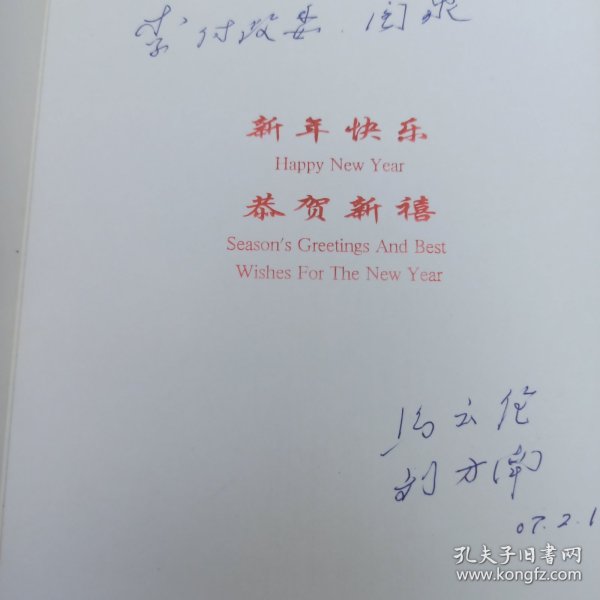 李付政委、闫泉
新年快乐
Happy New Year
恭贺新禧
Season's Greetings And Best
Wishes For The New Year
冯云
刘方南
07.2.1
孔夫子旧书网
www.kongfz.com